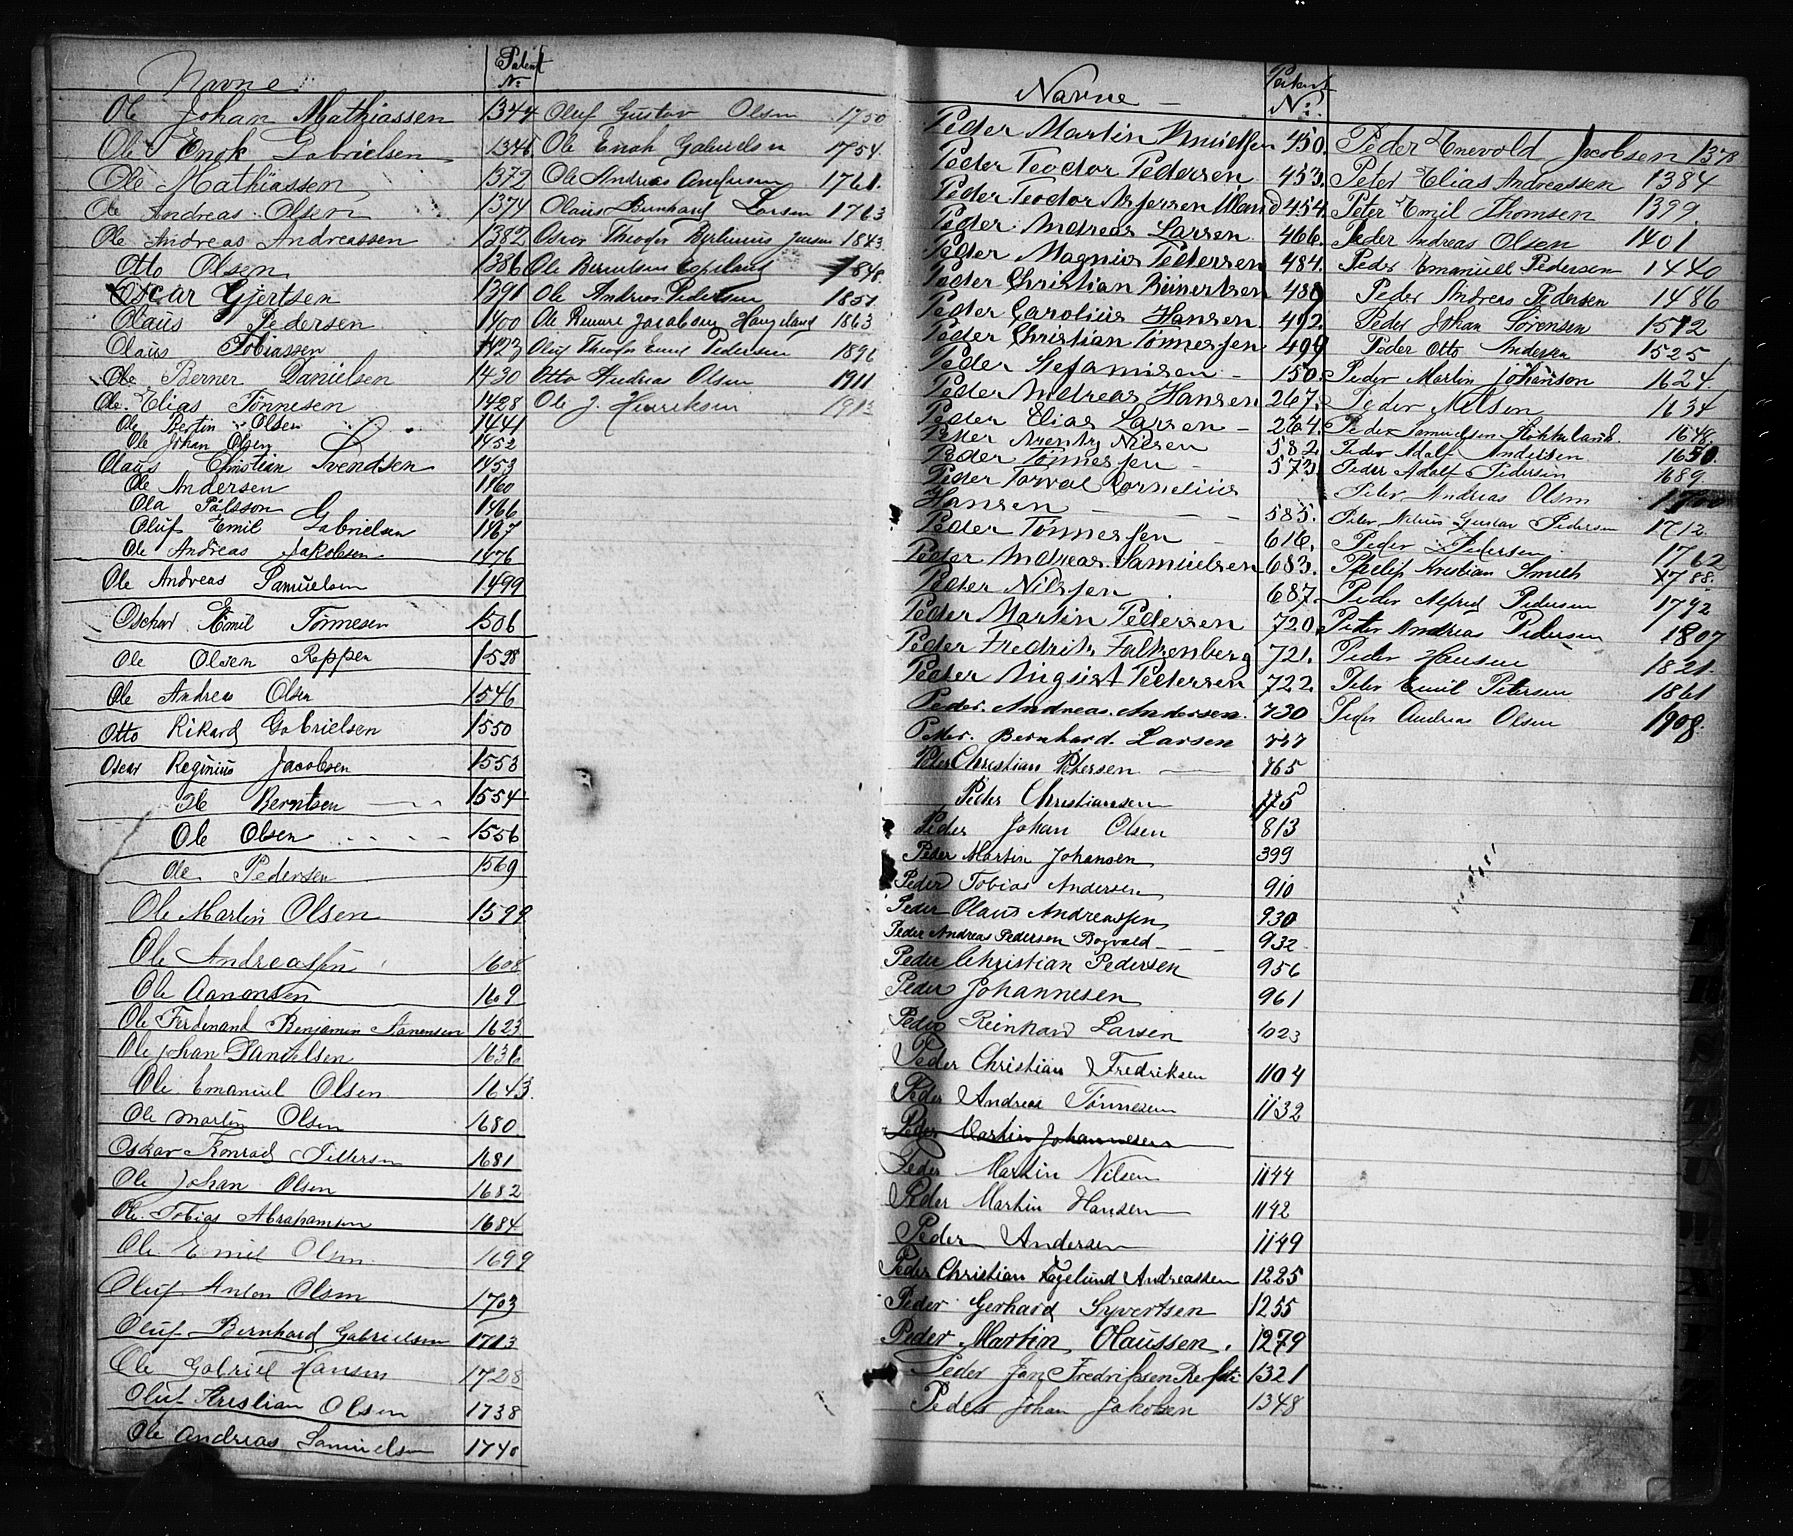 Navne
Patent
No
Ole Johan Mathiassen 1344
Ole Enok Gabrielsen 1346
Ole Mathiassen 1372
Ole Andreas Olsen 1374
Ole Andreas Andreassen 1382
Otto Olsen 1386
Oscar Gjertsen 1391
Olaus Pedersen 1400
Olaus Tobiassen 1423
Ole Berner Danielsen 1430
Ole Elias Tönnesen 1428
Ole Bertin Olsen 1441
Ole Johan Olsen 1452
Olaus Christian Svendsen 1453
Ole Andersen 1460
Ola Pålsson 1466
Oluf Emil Gabrielsen 1467
Ole Andreas Jakobsen 1476
Ole Andreas Samuelsen 1499
Oschar Emil Tönnesen 1506
Ole Olsen Reppen 1528
Ole Andreas Olsen 1546
Otto Rikard Gabrielsen 1550
Oscar Reginius Jacobsen 1553
Ole Berntsen 1554
Ole Olsen 1556
Ole Pedersen 1569
Ole Martin Olsen 1599
Ole Andreassen 1608
Ole Aanonsen 1609
Ole Ferdenand Benjamin Aanensen 1623
Ole Johan Danielsen 1636
Ole Emanuel Olsen 1643
Ole Martin Olsen 1680
Oskar Konrad Pettersen 1681
Ole Johan Olsen 1682
Ole Tobias Abrahamsen 1684
Ole Emil Olsen 1699
Oluf Anton Olsen 1703
Oluf Bernhard Gabrielsen 1713
Ole Gabriel Hansen 1728
Oluf Kristian Olsen 1738
Ole Andreas Samuelsen 1740
Oluf Gustav Olsen 1750
Ole Enok Gabrielsen 1754
Ole Andreas 1761
Olaus Bernhard Larsen 1763
Oscar Theofor 1843
Ole Berentsen Copeland 1848
Ole Andreas Pedersen 1851
Ole Jacobsen Haugeland 1863
Oluf Theofor Emil Pedersen 1896
Otto Andreas Olsen 1911
Ole J. Henriksen 1913
Navne
Patent
No:
Peder Martin Knudsen 450.
Peder Teodor Pedersen 453.
Peder Teodor Asjersen 454.
Peder Andreas Larsen 466.
Peder Magnus Pedersen 484.
Peder Christian Reinertsen 488
Peder Carolius Hansen 492.
Peder Christian Tönnessen 499
Peder Stefansen 150.
Peder Andreas Hansen 267.
Peder Elias Larsen 264.
Peder Arentz Nilsen 582
Peder Tönnessen 573.
Peder Torval Kornelius
Hansen 585.
Peder Tönnessen 616.
Peder Andreas Samuelsen 683.
Peder Nilssen 687.
Peder Martin Pedersen 720.
Peder Fredrik Falkenberg 721.
Peder August Pedersen 722.
Peder Andreas Andersen. 730
Peder Bernhard Larsen 737
Peter Christian Petersen 765
Peder Christiansen 775
Peder Johan Olsen 813
Peder Martin Johansen 399
Peder Tobias Andersen 910
Peder Olaus Andreassen 930
Peder Andreas Pedersen Bogvald 932
Peder Christian Pedersen 956
Peder Johannesen 961
Peder Reinhard Larsen 1023
Peder Christian Fredriksen 1104
Peder Andreas Tönnesen 1132
Peder Martin Johannesen
Peder Martin Nilsen 1144
Peder Martin Hansen 1142
Peder Andersen 1149
Peder Christian Fagelund Andreassen 1225
Peder Gerhard Syvertsen 1255
Peder Martin Olaussen. 1279
Peder Jan Fredriksen 1321
Peder Johan Jakobsen 1348
Peder Enevold Jacobsen 1378
Peter Elias Andreassen 1384
Peter Emil Thomsen 1399
Peder Andreas Olsen 1401
Peder Emanuel Pedersen 1440
Peder Andreas Pedersen 1486
Peder Johan Sörensen 1512
Peder Otto Andersen 1525
Peder Martin Johanson 1624
Peder Nelsen 1634
Peder Samuelsen 1648.
Peder Adolf Andersen 1650.
Peder Adolf Pedersen 1689
Peter Andreas Olsen 1700
Peter Nilius Gustav Pedersen 1712
Peder Pedersen 1762
Philip Kristian Smith 1788.
Peder Alfred Pedersen 1792
Peter Andreas Pedersen 1807
Peder Hansen 1821.
Peter Emil Petersen 1861
Peder Andreas Olsen 1908